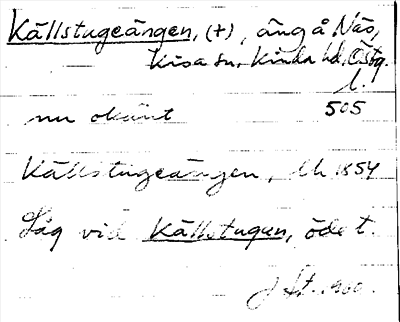 Källstugeängen, (+), äng å Näs,
Kisa sn, Kinda hd, Östg.
l.
nu okänt 505
Källstugeängen, lh 1854
Låg vid Källstugan, öde t.